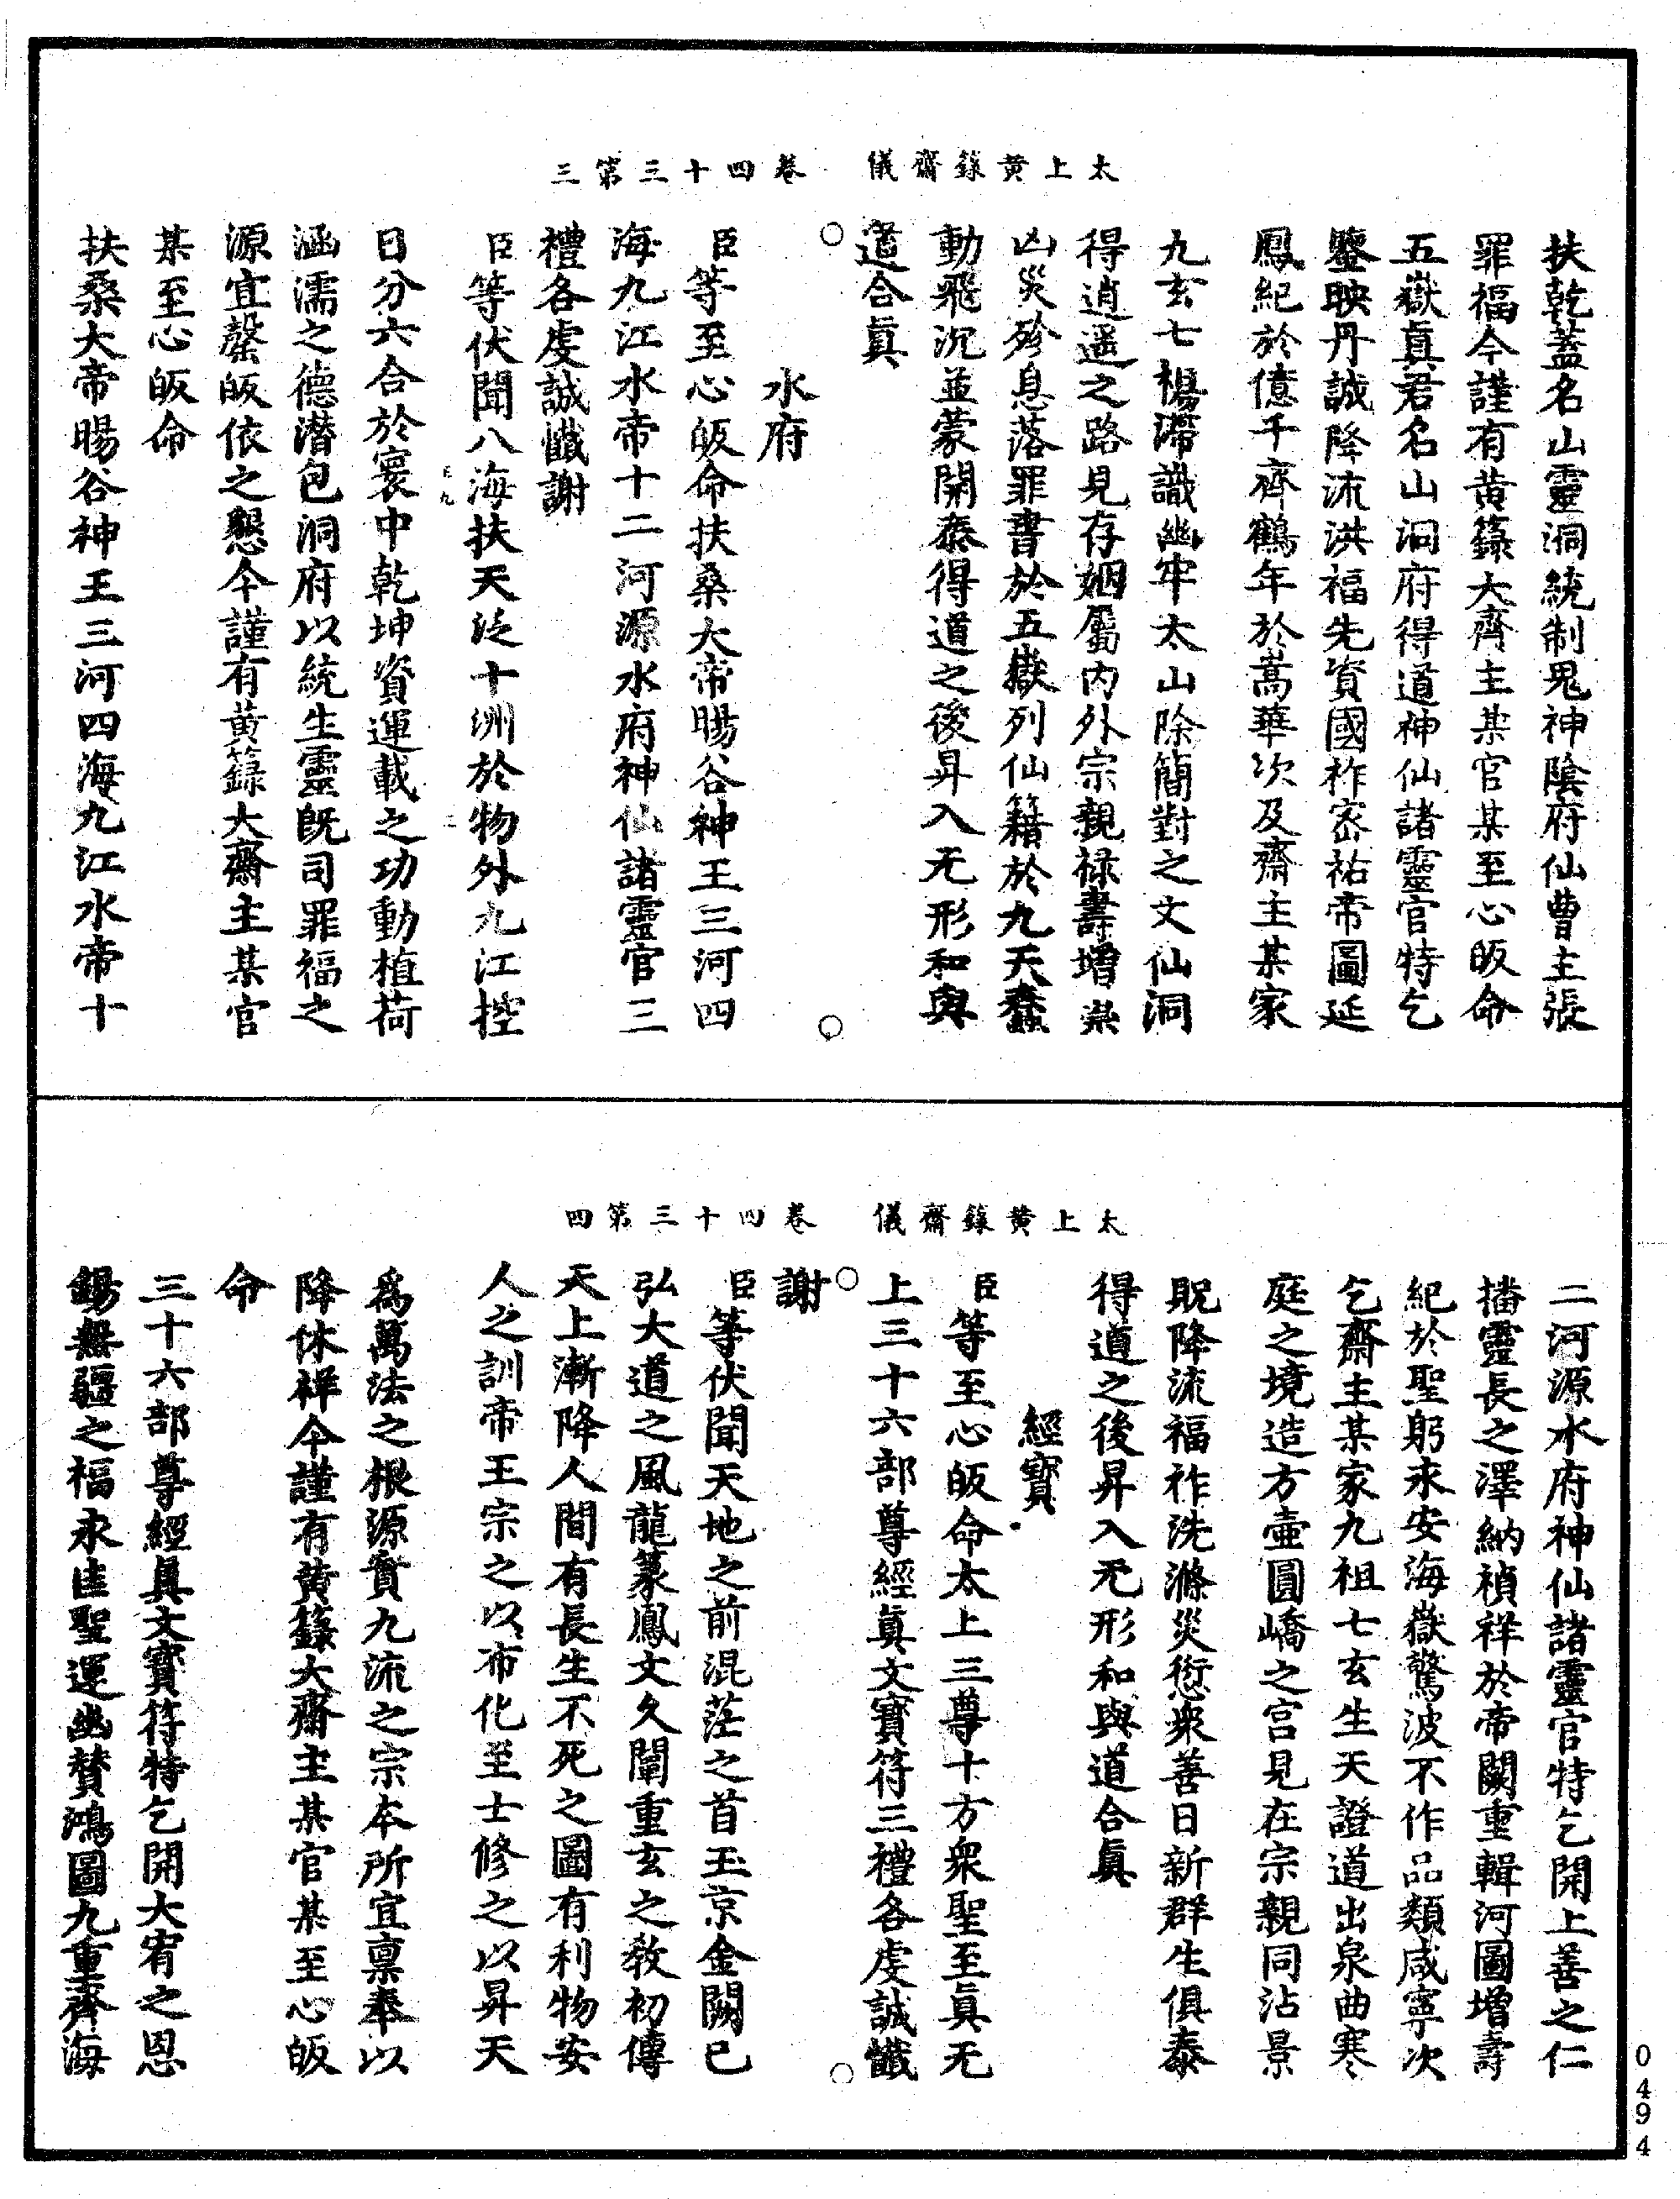 太上黄籙齋儀　卷四十三第三
扶乾蓋名山靈洞統制鬼神陰府仙曹主張
罪福今謹有黄籙大齊主某官某至心皈命
五嶽真君名山洞府得道神仙諸靈官特乞
鑒映丹誠降流洪福先資國祚宻祐帝圖延
鳳紀於億千齊鶴年於嵩華次及齋主某家
九玄七楊滯識幽牢太山除簡對之文仙洞
得逍遥之路見存姻屬内外宗親禄壽增崇
凶災殄息落罪書於五嶽列仙籍於九天蠢
動飛沉並蒙開泰得道之後昇入无形和與
道合真
水府
臣等至心皈命扶桑大帝暘谷神王三河四
海九江水帝十二河源水府神仙諸靈官三
禮各虔誠懺謝
臣等伏聞八海扶天泛十洲於物外九江控
日分六合於寰中乾坤資運載之功動植荷
涵濡之德潜包洞府以統生靈既司罪福之
源宜罄皈依之懇今謹有黄籙大齋主某官
某至心皈命
扶桑大帝暘谷神王三河四海九江水帝十
太上黄籙齋儀　卷四十三第四
二河源水府神仙諸靈官特乞開上善之仁
播靈長之澤納禎祥於帝闕重輯河圖增壽
紀於聖躬永安海嶽驚波不作品類咸寧次
乞齋主某家九祖七玄生天證道出泉曲寒
庭之境造方壷圓嶠之宫見在宗親同沾景
貺降流福祚洗滌災愆衆善日新群生俱泰
得道之後昇入无形和與道合真
經寳
臣等至心皈命太上三尊十方衆聖至真无
上三十六部尊經真文寳符三禮各虔誠懺
謝
臣等伏聞天地之前混茫之首玉京金闕已
弘大道之風龍篆鳳文久闡重玄之教初傳
天上漸降人間有長生不死之圖有利物安
人之訓帝王宗之以布化至士修之以昇天
爲萬法之根源實九流之宗本所宜稟奉以
降休祥今謹有黄籙大齋主某官某至心皈
命
三十六部尊經真文寳符特乞開大宥之恩
錫無疆之福永匡聖運幽賛鴻圖九重齊海
0494